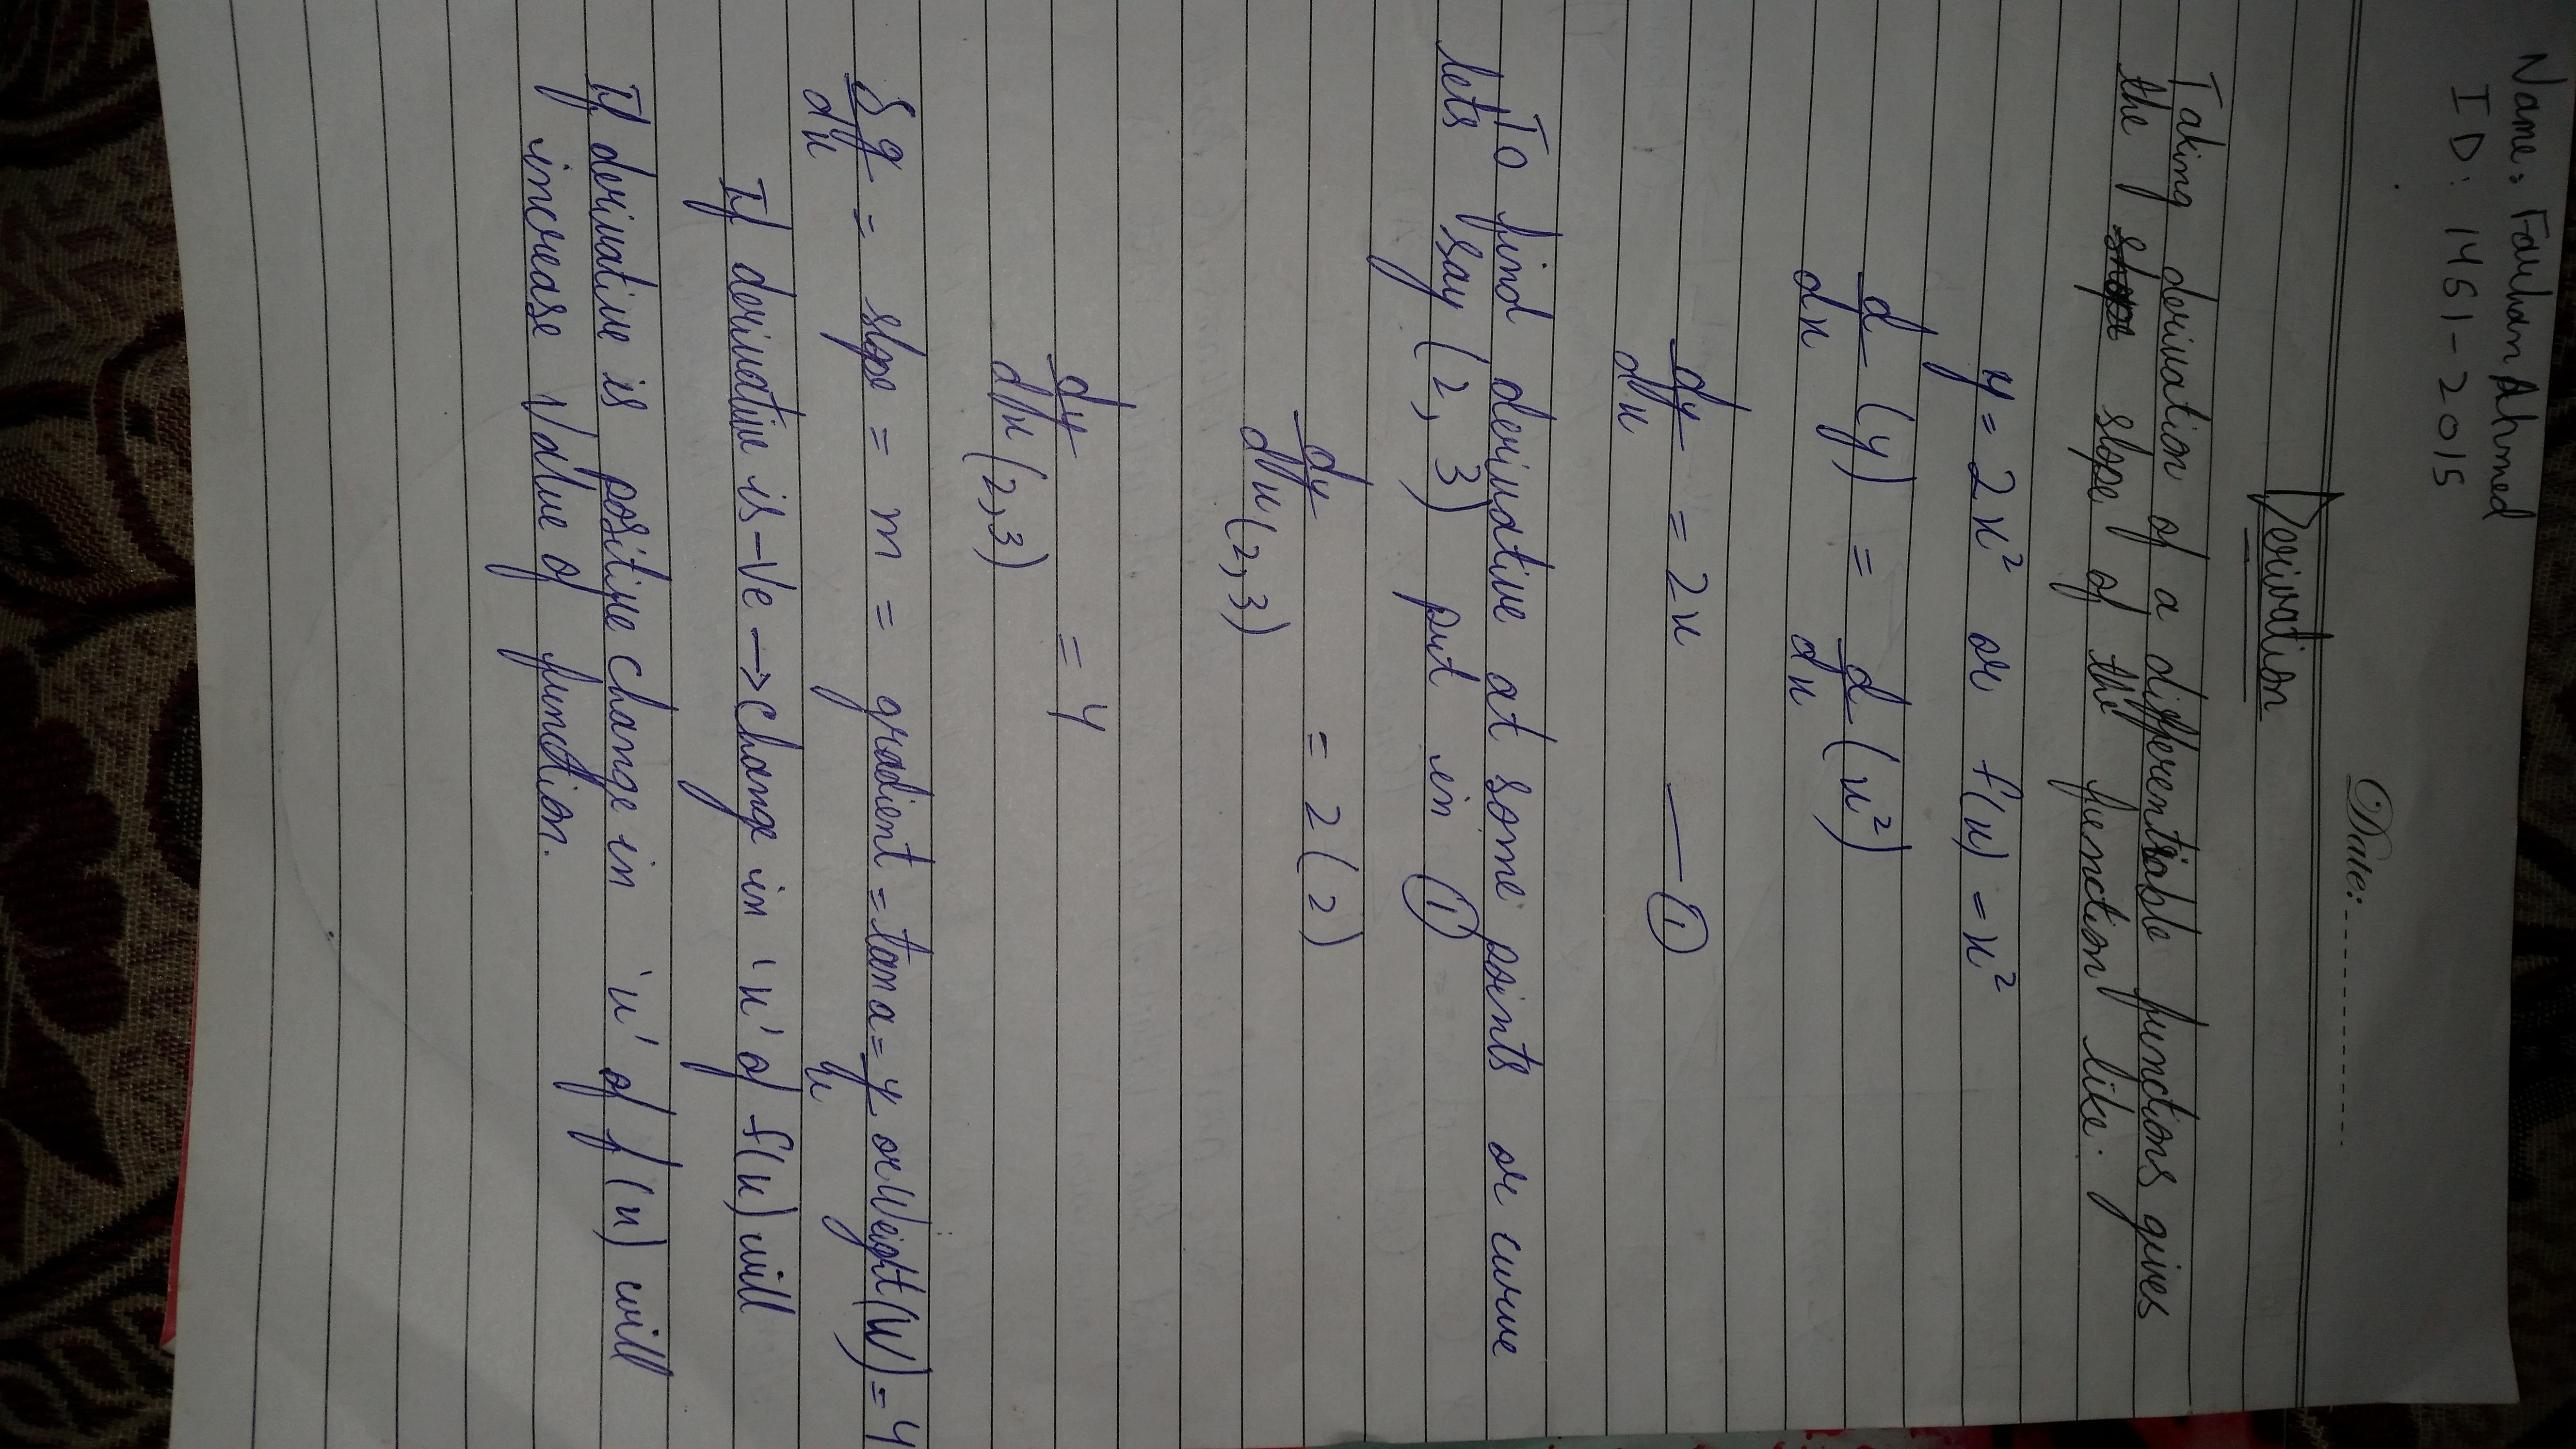 Name: Farhan Ahmed
ID: 1461-2015
Date:
Derivation
Taking derivation of a differentiable functions gives
the slope of the function like.
y = 2x² or f(x) = x²
d/dx (y) = d/dx (x²)
dy/dx = 2x — ①
To find derivative at some points or curve
lets say (2, 3) put in ①
dy/dx (2,3) = 2(2)
dy/dx (2,3) = 4
= slope = m = gradient = tan a = y/x or Weight (W) = 4
If derivative is -Ve → change in 'x' of f(x) will
If derivative is positive change in 'x' of f(x) will
increase Value of function.